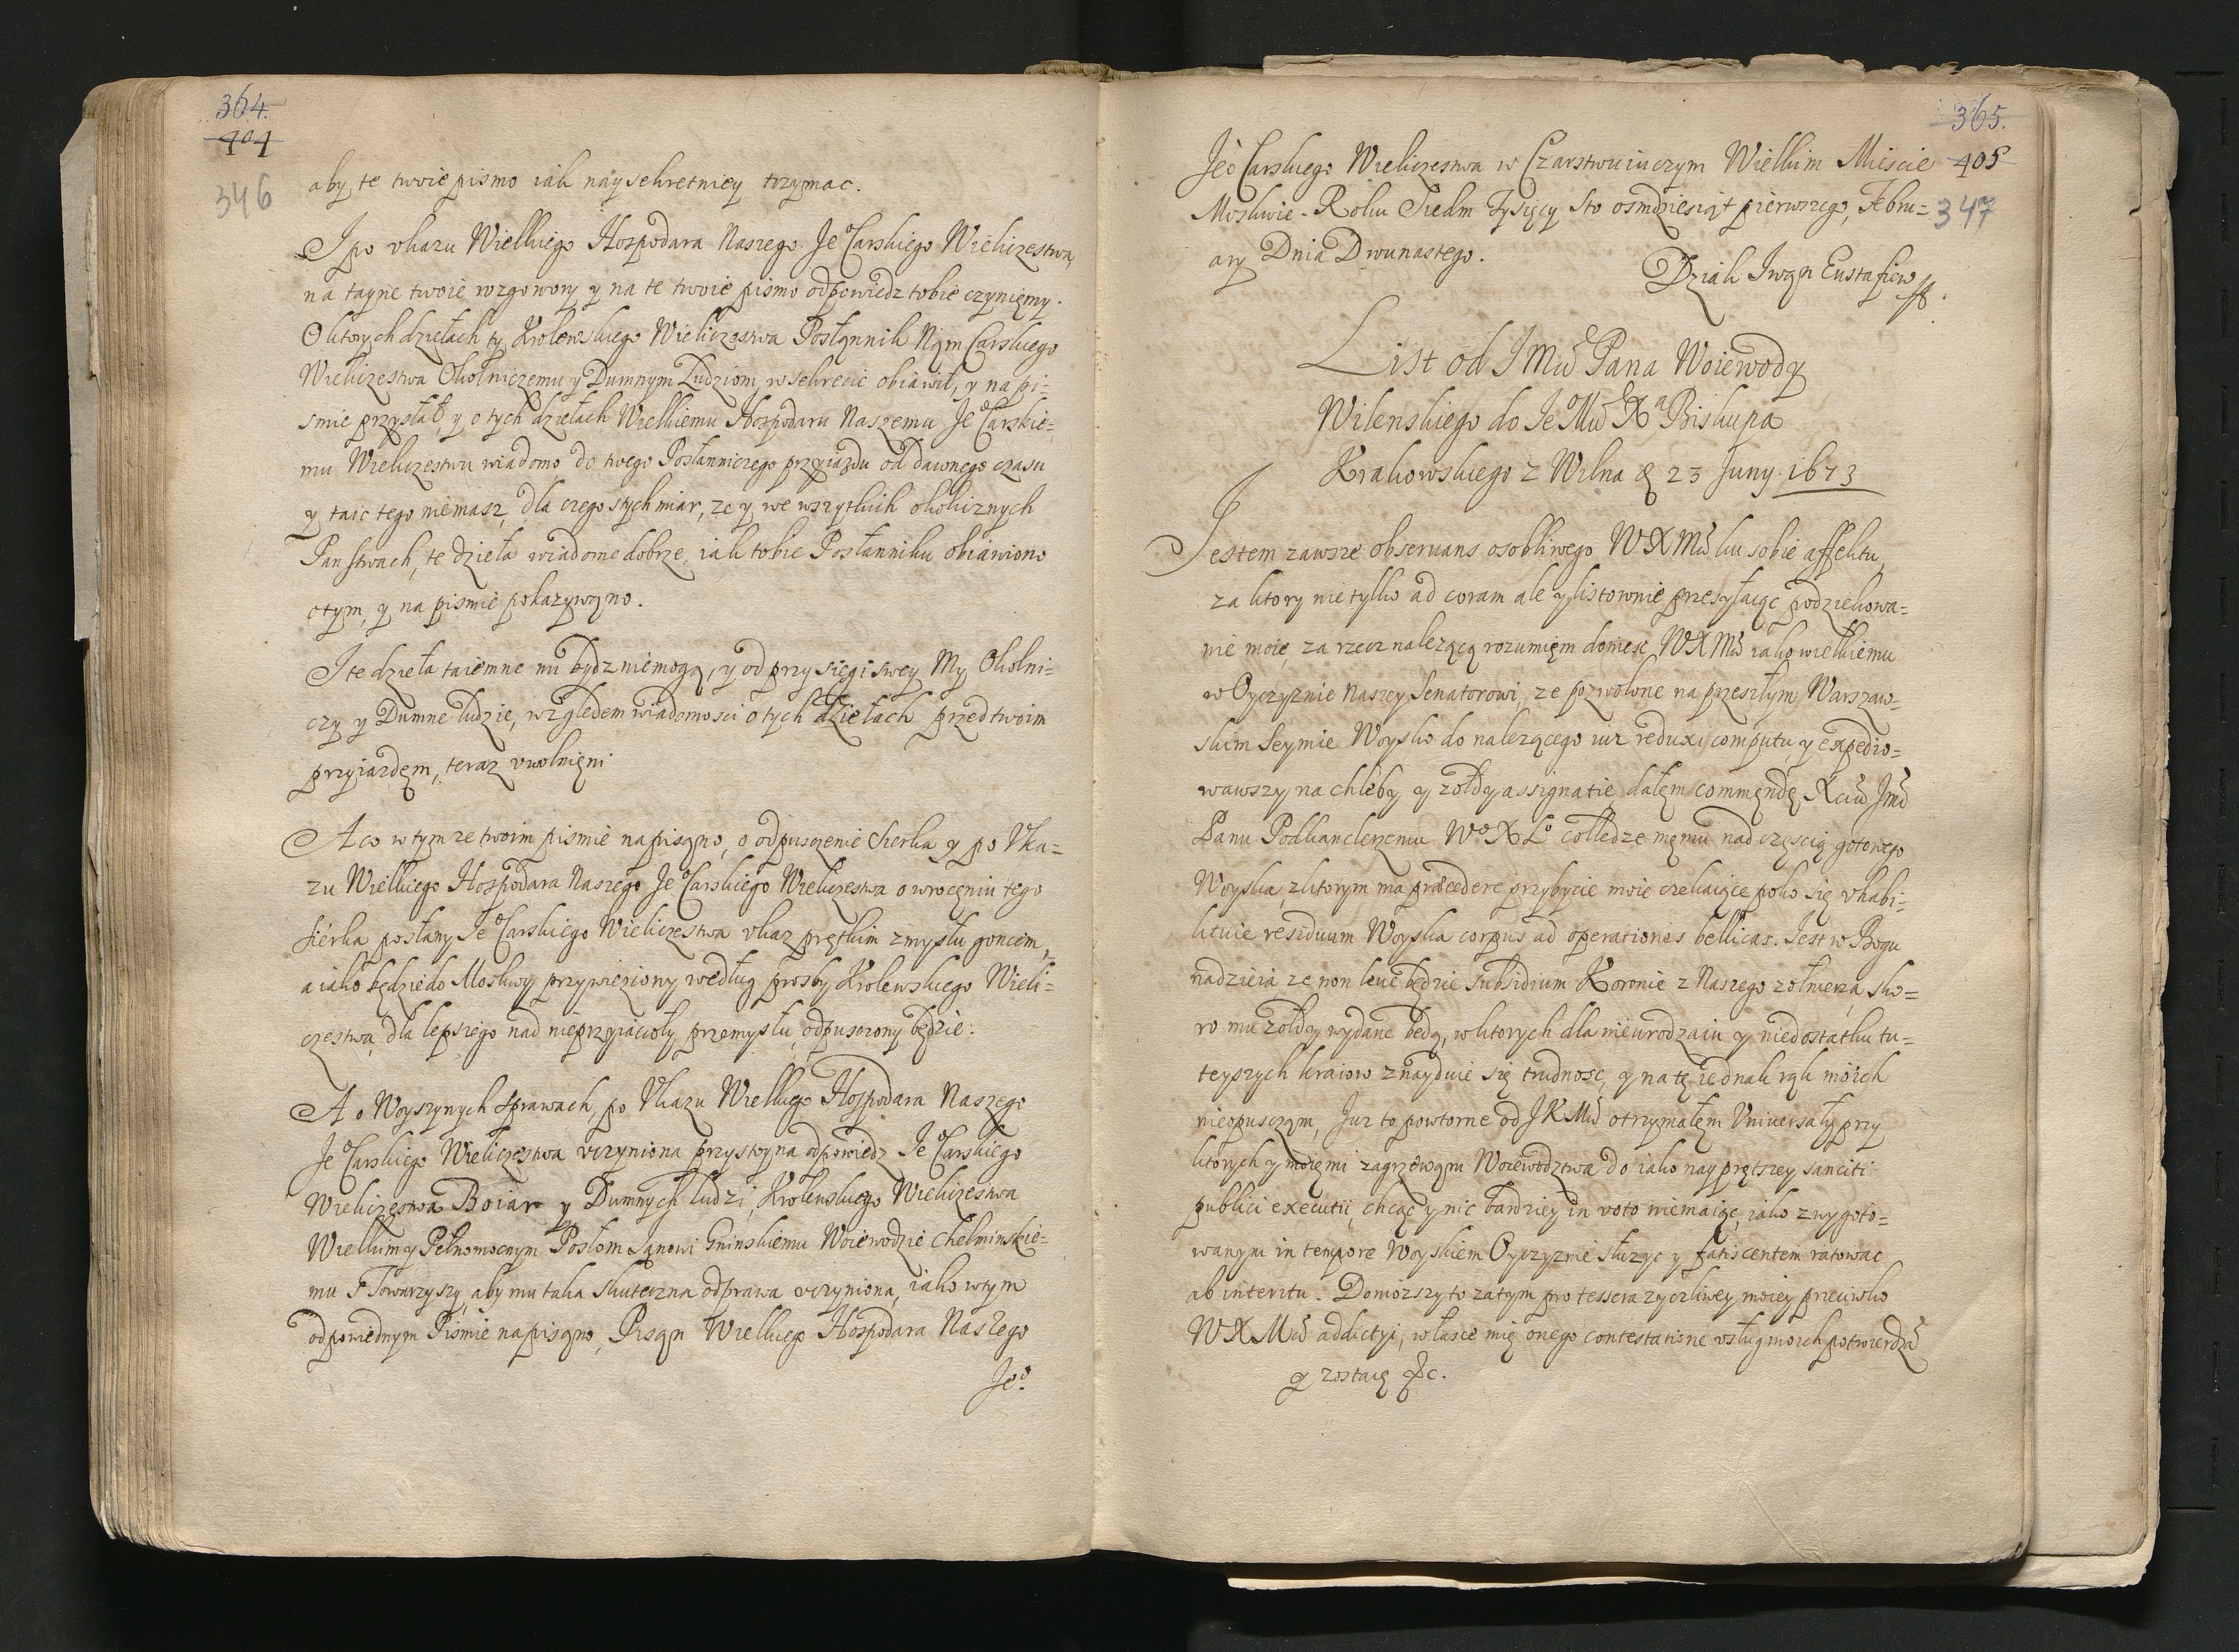 364.
404
346
aby te twoie pismo iak naysekretniey trzymac.
I po vkazu Wielkiego Hospodara Naszego Je͛ Carskiego Wieliczestwa,
na tayne twoie rozgowory y na te twoie pismo odpowiedz tobie czynięmy.
O ktorych dziełach ty Krolewskiego Wieliczestwa Posłannik Nąm Carskiego
Wieliczestwa Okolniczemu y Dumnym Ludziom, w sekrecie obiawił, y na pi=
smie przysłał, y o tych dziełach Wielkiemu Hospodaru Naszemu Je͛ Carskie=
mu Wieliczestwu wiadomo do twego Posłanniczego przyiazdu od dawnego czasu
y taic tego niemasz dla czego z tych miar, ze y we wszytkich okolicznych
Panstwach, te dzieła wiadome dobrze, iak tobie Posłanniku obiawiono
o tym, y na pismie pokazywąno.
I te dzieła taiemne nu bydz niemogą, y od przysięgi swey My Okolni=
czy y Dumne ludzie, względem wiadomosci o tych dziełach przed twoim
przyiazdęm, teraz vwolnięni
A co w tym ze twoim pismie napisąno, o odpusczenie Sierka y po Vka=
zu Wielkiego Hospodara Naszego Je͛ Carskiego Wieliczestwa o wrocęniu tego
Siérka posłany Je͛ Carskiego Wieliczestwa vkaz prętkim zmysłu goncem,
a iako będzie do Moskwy przywieziony według prosby Krolewskiego Wieli=
czestwa, dla lepsiego nad nieprzyiacioły przemysłu, odpusczony będzie:
A o Woyszynych sprawach, po Vkazu Wielkiego Hospodara Naszego
Je͛ Carskiego Wieliczestwa vczyniona przystoyna odpowiedz Je͛ Carskiego
Wieliczęstwa Boiar y Dumnych ludzi, Krolewskiego Wieliczestwa
Wielkim y Pełnomocnym Posłom Janowi Gninskiemu Woiewodzie Chełminskie=
mu s Towarzyszy, aby mu taka skuteczna odprawa vczyniona, iako w tym
odpowiednym Pismie napisąno, Pisąn Wielkiego Hospodara Naszego
Jeº.
365.
405
347
Jeº Carskiego Wieliczestwa w Czarstwuiuczym Wielkim Miescie
Moskwie. Roku Siedm Tysięcy Sto osmdziesiąt pierwszego, Febru=
ary Dnia Dwunastego.
Dziak Iwąn Eustafiew
List od JMci Pana Woiewody
Wilenskiego do Jeº Mci Xª Biskupa
Krakowskiego z Wilna d 23 Juny 1673
Jestem zawsze obseruans osobliwego WXMci ku sobie affektu,
za ktory nie tylko ad coram ale y listownie przesyłaiąc podziekowa=
nie moie, za rzecz nalezącą rozumięm doniesc WXMci iako wielkiemu
w Oyczyznie Naszey Senatorowi, ze pozwolone na przeszłym Warszaw=
skim Seymie Woysko do nalezącego iuz reduxi computu, y expedio=
wawszy na chleby y zołdy assignatie, dałem commęndę Xciu Jmci
Panu Podkanclerzemu Wº X Lº colledze męmu nad częscią gotowego
Woyska, z ktorym ma præcedere przybycie moie czekaiące poko się vhabi=
lituie residuum Woyska corpus ad operationes bellicas. Iest w Bogu
nadzieia ze non leue będzie subsidium Koronie z Naszego zołnierza, sko=
ro mu zołdy wydane będą, w ktorych dla nieurodzaiu y niedostatku tu=
teyszych kraiow znayduie się trudnosc, y na tę iednak rąk moich
nieopuscząm, Iuz to powtorne od JKMci otrzymałem Vniuersały przy
ktorych y moięmi zagrzewąm Woiewodztwa do iako nayprętszey sanciti
publici executii, chcąc y nic bardziey in voto niemaiąc, iako z wygoto=
wanym in tempore Woyskiem Oyczyznie słuzyc y fatiscentem ratowac
ab interitu. Doniozszy to zatym pro tessera zyczliwey moiey przeciwko
WXMci addictyi, w łasce mię onego contestatione vsług moich potwierdza
y zostaię &c.